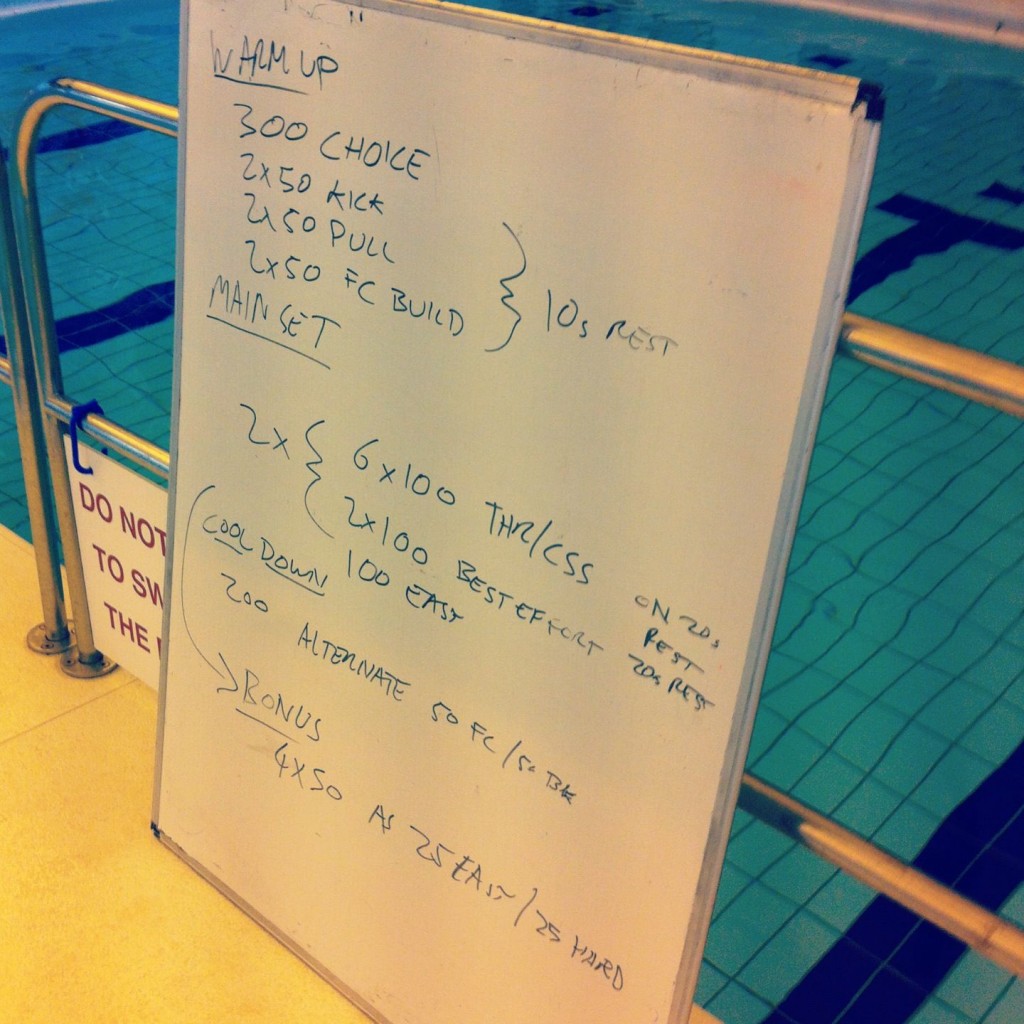 WARM UP
300 CHOICE
2x50 KICK
2x50 PULL
2x50 FC BUILD
10s REST
MAIN SET
2x
6x100 THR/CSS ON 20s REST
2x100 BEST EFFORT 20s REST
100 EASY
COOL DOWN
200 ALTERNATE 50 FC/50 BK
BONUS
4x50 AS 25 EASY/25 HARD
DO NOT
TO SW
THE